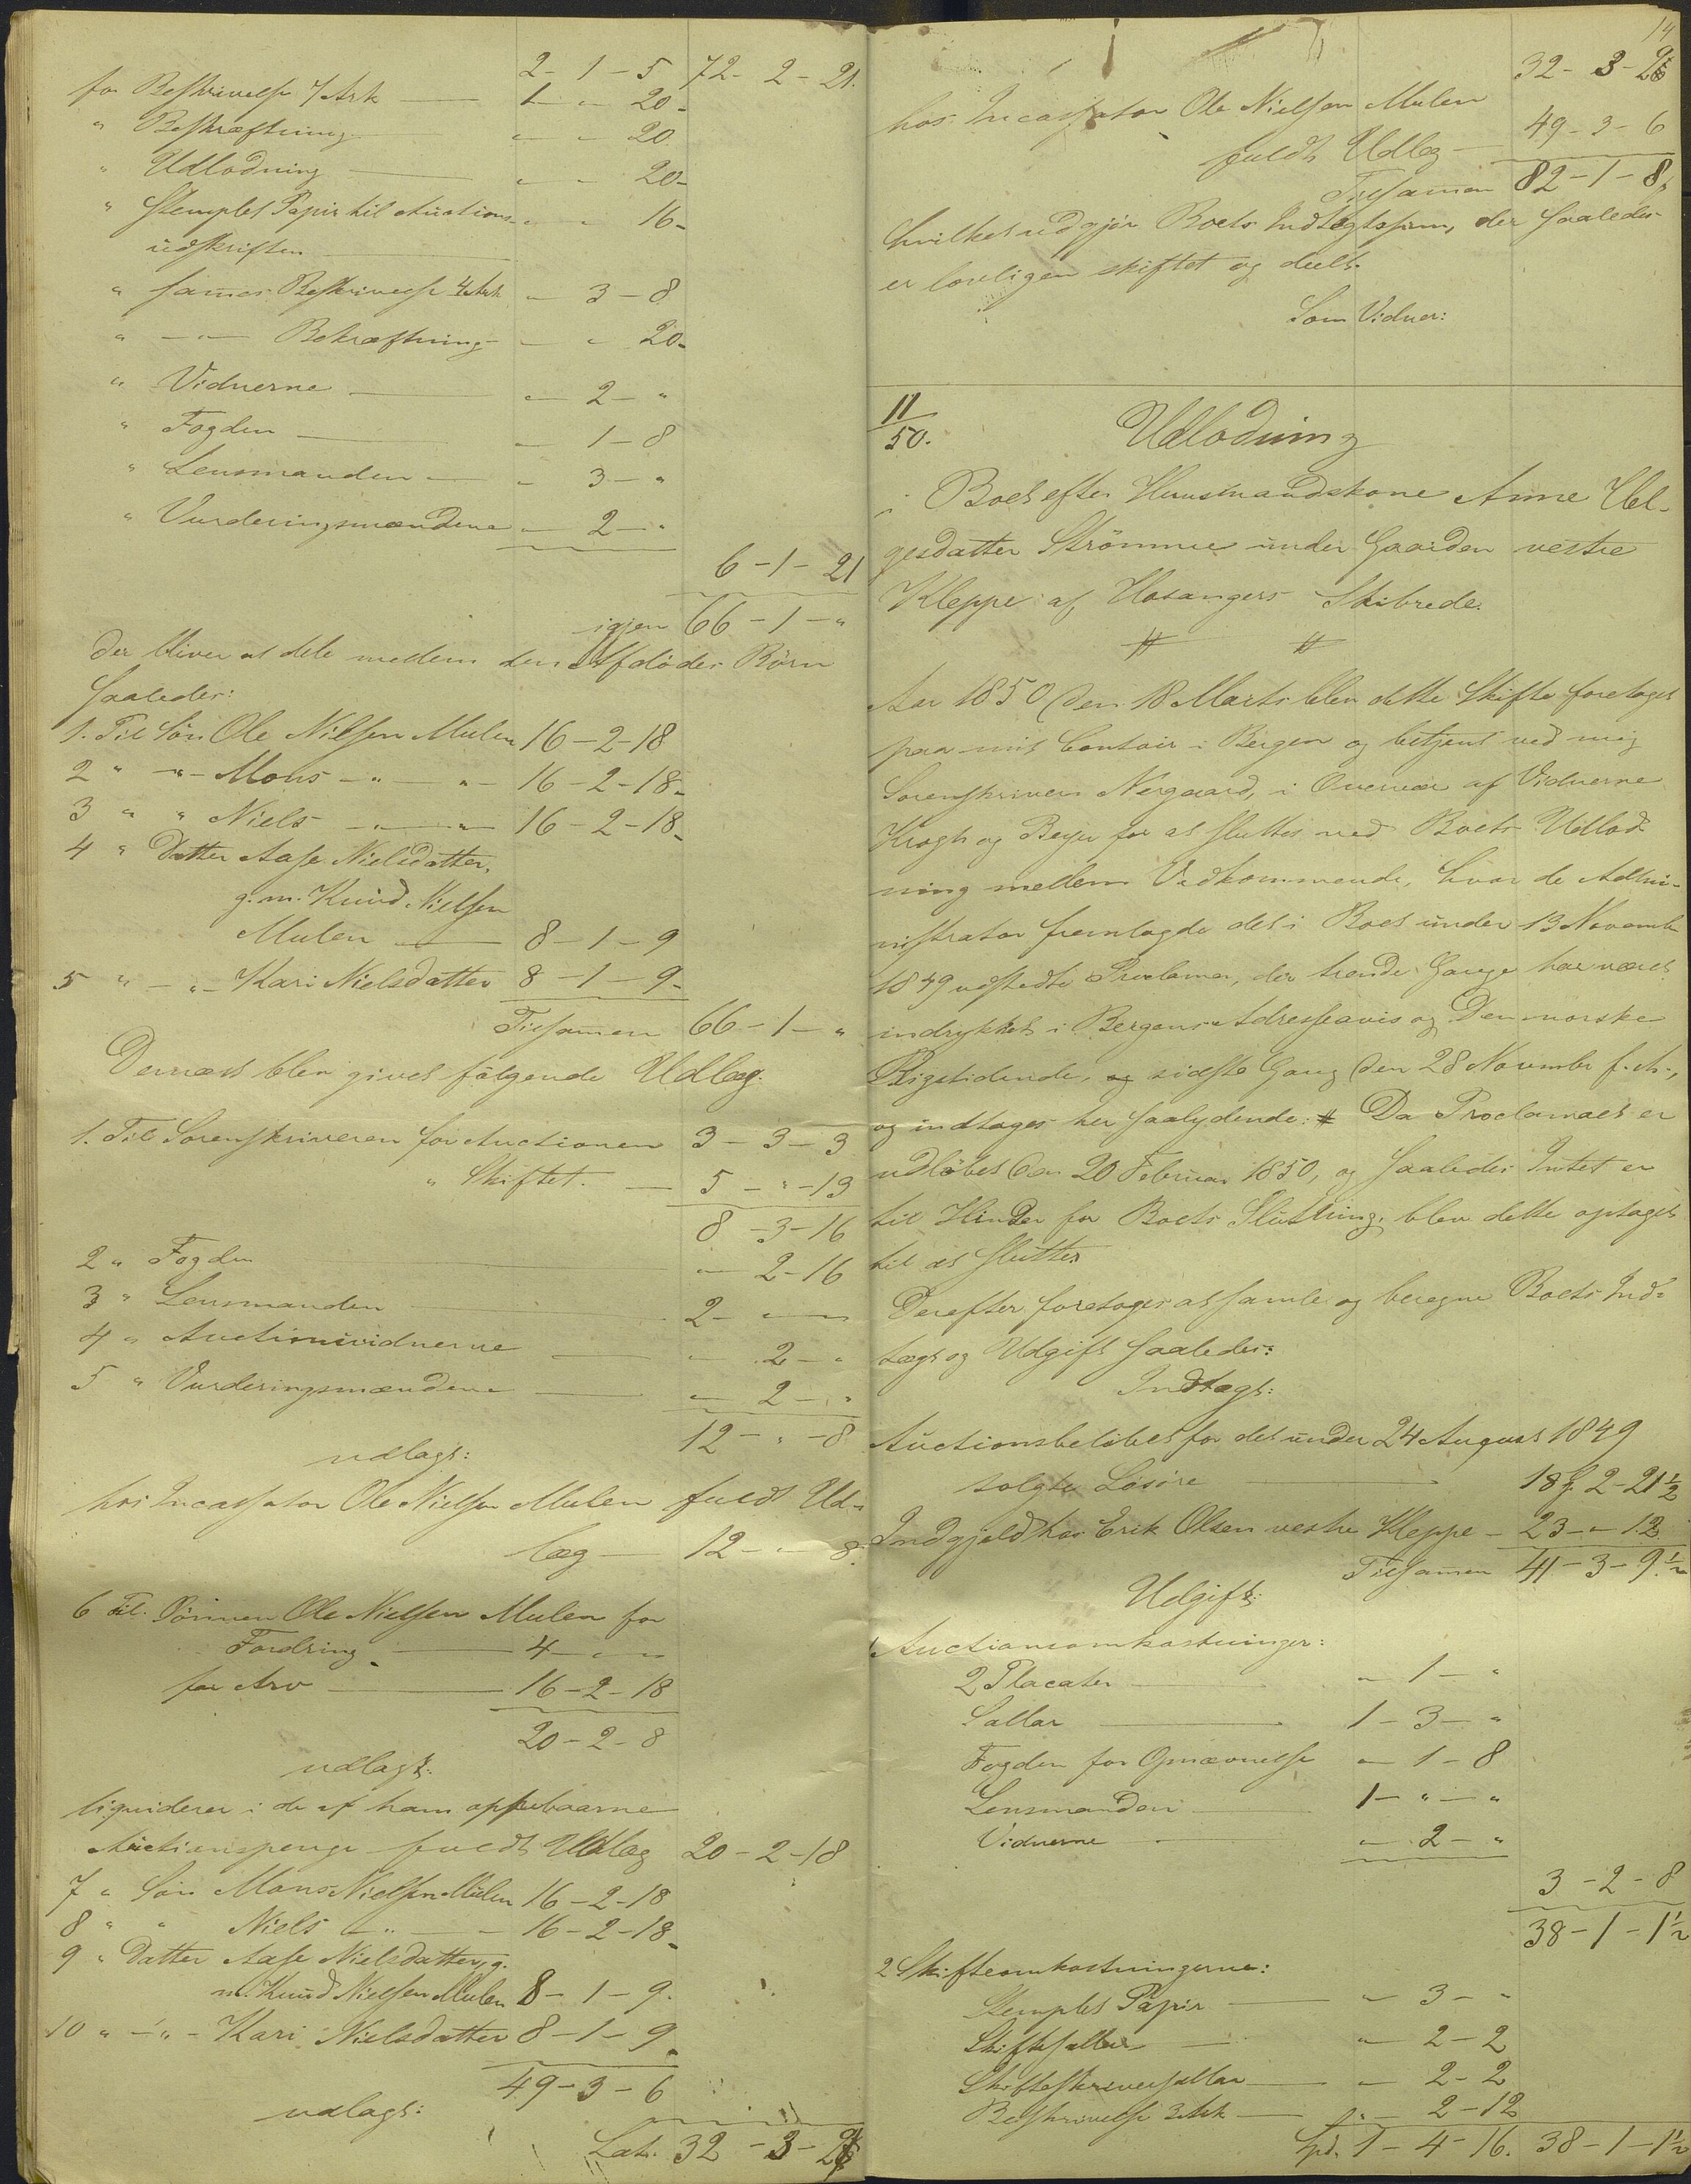 2 - 1 - 5 72 - 2 - 21.
for Beskrivelse 7 Ark — 1 - " - 20 -
" Bekræftning — " - " - 20.
" Udlodning — " - " - 20 -
" Stemplet Papir til Auctions- " - " - 16 -
udskriften —
" sammes Beskrivelse 4 Ark " - 3 - 8
" - " - Bekræftning - " - " - 20 -
" Vidnerne — " - 2 - "
" Fogden — " - 1 - 8
" Lensmanden — " - 3 - "
" Vurderingsmændene " - 2 - "
6 - 1 - 21
igjen 66 - 1 - "
der bliver at dele mellem den Afdødes Börn
saaledes:
1. Til Sön Ole Nilsen Mulen 16 - 2 - 18
2 " - " - Mons - " - " - 16 - 2 - 18 -
3 " " Niels - " - " - 16 - 2 - 18 -
4 " Datter Aase Nielsdatter,
g. m. Knud Nilsen
Mulen — 8 - 1 - 9
5 " - " - Kari Nielsdatter 8 - 1 - 9 -
Tilsamen 66 - 1 - "
Dernæst blev givet fölgende Udlæg.
1. Til Sorenskriveren for Auctionen 3 - 3 - 3
" Skiftet. — 5 - " - 13
8 - 3 - 16
2 " Fogden — " - 2 - 16
3 " Lensmanden — 2 - " - "
4 " Auctionsvidnerne — " - 2 - "
5 " Vurderingsmændene — " - 2 - "
12 - " - 8
udlagt:
hos Incassator Ole Nielsen Mulen fuldt Ud-
læg — 12 - " - 8.
6 Til Sönnen Ole Nielsen Mulen for
Fordring — 4 - " - "
for Arv — 16 - 2 - 18
20 - 2 - 8
udlagt:
liquiderer i de af ham oppebaarne
Auctionspenge fuldt Udlæg 20 - 2 - 18
7 " Sön Mons Nielsen Mulen 16 - 2 - 18
8 " " Niels - " - 16 - 2 - 18 -
9 " Datter Aase Nielsdatter, g.
m. Knud Nielsen Mulen 8 - 1 - 9.
10 " - " - Kari Nielsdatter 8 - 1 - 9 -
49 - 3 - 6
udlagt:
Lat. 32 - 3 - 2
14
32 - 3 - 2
hos Incassator Ole Nielsen Mulen
fuldt Udlæg — 49 - 3 - 6
Tilsamen 82 - 1 - 8,
hvilket udgjör Boets Indtægtssum, der saaledes
er lovligen skiftet og deelt.
Som Vidner:
11/50. Udlodning
i Boet efter Huusmandskone Anne Hel-
gesdatter Strömme under Gaarden vestre
Kleppe af Hosangers Skibrede.
# #
Aar 1850 den 18 Marts blev dette Skifte foretaget
paa mit Contoir i Bergen og betjent ved mig
Sorenskriver Nergaard, i Overvær af Vidnerne
Krogh og Beyer for at sluttes ved Boets Udlod-
ning mellem Vedkommende, hvor da Admi-
nistrator fremlagde det i Boet under 13 Novembr
1849 udstedte Proclama, der trende Gange har været
indrykket i Bergens Adresseavis og Den norske
Rigstidende, og sidste Gang den 28 Novembr f. A.,
og indtages her saalydende: # Da Proclamaet er
udlöbet den 20 Februar 1850, og saaledes Intet er
til Hinder for Boets Slutning, blev dette optaget
til at sluttes
Derefter foretoges at samle og beregne Boets Ind-
tægt og Udgift saaledes:
Indtægt:
Auctionsbelöbet for det under 24 August 1849
solgte Lösöre — 18 2 - 21 1/2
Indgjæld hos Erik Olsen vestre Kleppe - 23 - " - 12
Tilsamen 41 - 3 - 9 1/2
Udgift:
1 Auctionsomkostninger:
2 Placater — " - 1 - "
Sallar — 1 - 3 - "
Fogden for Opnævnelse " - 1 - 8
Lensmanden — 1 - " - "
Vidnerne — " - 2 - "
3 - 2 - 8
38 - 1 - 1 1/2
2 Skifteomkostningerne:
Stemplet Papir — " - 3 - "
Skiftesallar — " - 2 - 2
Skifteskriversallar — " - 2 - 2
Beskrivelse 3 Ark — " - 2 - 12
Spd. 1 - 4 - 16. 38 - 1 - 1 1/2